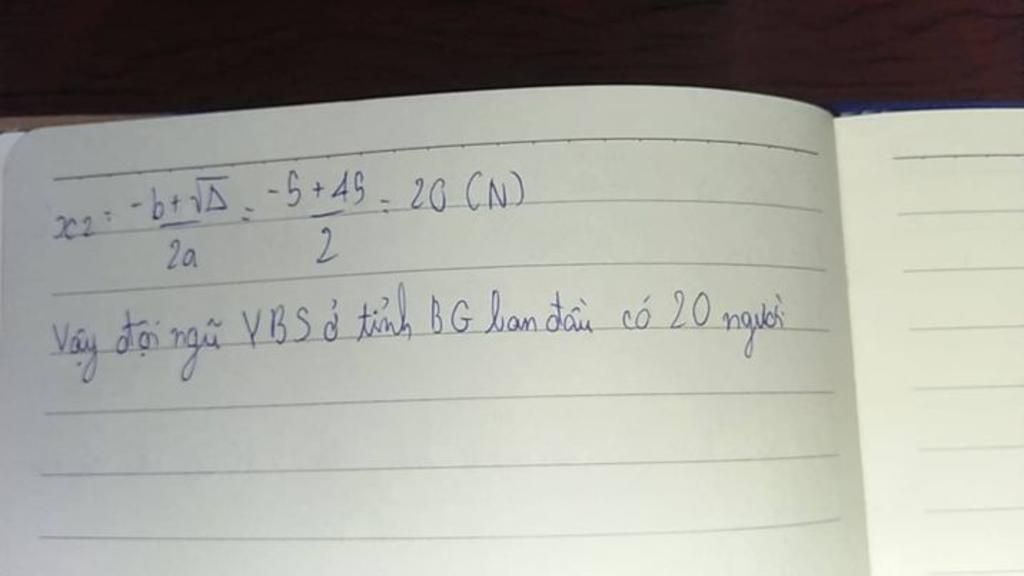 x2 = -b+√Δ / 2a = -5+45 / 2 = 20 (N)
Vậy đội ngũ YBS ở tỉnh BG ban đầu có 20 người